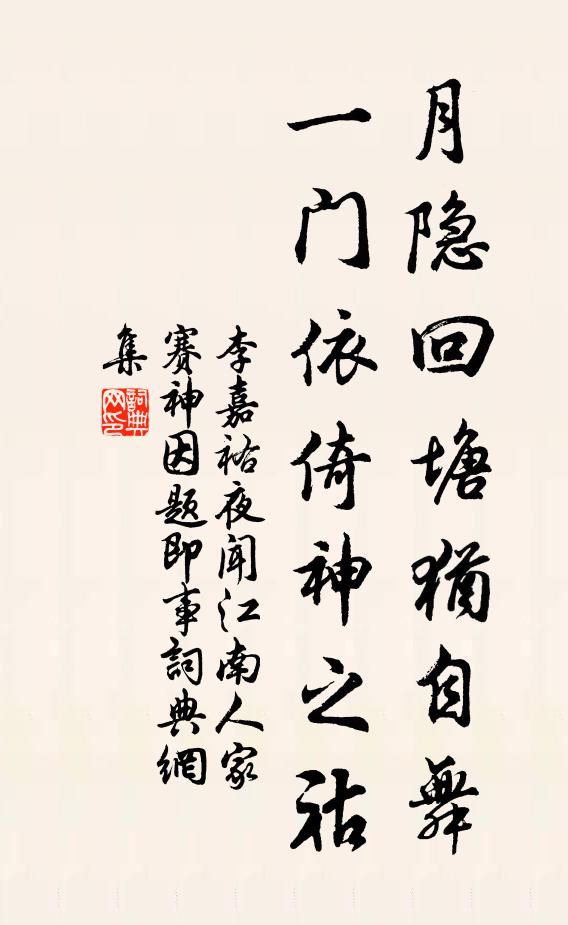 月隐回塘犹自舞
一门依倚神之祜
李嘉祐夜闻江南人家
赛神因题即事詞典網
集
詞典
网印